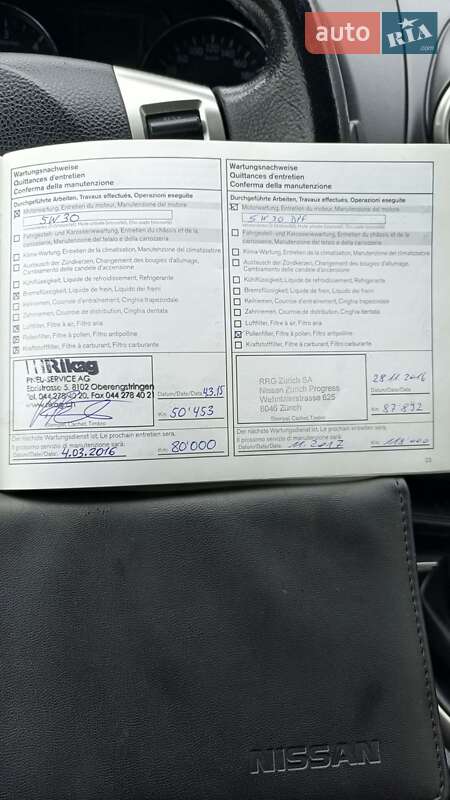 auto RIA .com
Wartungsnachweise
Quittances d'entretien
Conferma della manutenzione
Durchgeführte Arbeiten, Travaux effectués, Operazioni eseguite
Motorwartung, Entretien du moteur, Manutenzione del motore
5W30
Fahrgestell- und Karosseriewartung, Entretien du châssis et de la
carrosserie, Manutenzione del telaio e della carrozzeria
Klima-Wartung, Entretien de la climatisation, Manutenzione del climatizzatore
Austausch der Zündkerzen, Changement des bougies d'allumage,
Cambiamento delle candele d'accensione
Kühlflüssigkeit, Liquide de refroidissement, Refrigerante
Bremsflüssigkeit, Liquide de frein, Liquido dei freni
Keilriemen, Courroie d'entraînement, Cinghia trapezoidale
Zahnriemen, Courroie de distribution, Cinghia dentata
Luftfilter, Filtre à air, Filtro aria
Pollenfilter, Filtre à pollen, Filtro antipolline
Kraftstofffilter, Filtre à carburant, Filtro carburante
Rikag
PNEU-SERVICE AG
5, 8102 Oberengstringen
Tel. 044 278 40 20, Fax 044 278 40 21
Datum/Date/Data: 4.3.15
Km: 50'453
Der nächste Wartungsdienst ist, Le prochain entretien sera,
Il prossimo servizio di manutenzione sarà:
Datum/Date/Data: 4.03.2016 Km: 80'000
Wartungsnachweise
Quittances d'entretien
Conferma della manutenzione
Durchgeführte Arbeiten, Travaux effectués, Operazioni eseguite
Motorwartung, Entretien du moteur, Manutenzione del motore
5W30
Fahrgestell- und Karosseriewartung, Entretien du châssis et de la
carrosserie, Manutenzione del telaio e della carrozzeria
Klima-Wartung, Entretien de la climatisation, Manutenzione del climatizzatore
Austausch der Zündkerzen, Changement des bougies d'allumage,
Cambiamento delle candele d'accensione
Kühlflüssigkeit, Liquide de refroidissement, Refrigerante
Bremsflüssigkeit, Liquide de frein, Liquido dei freni
Keilriemen, Courroie d'entraînement, Cinghia trapezoidale
Zahnriemen, Courroie de distribution, Cinghia dentata
Luftfilter, Filtre à air, Filtro aria
Pollenfilter, Filtre à pollen, Filtro antipolline
Kraftstofffilter, Filtre à carburant, Filtro carburante
RRG Zürich SA
Nissan Zürich Progress
625
8046 Zürich
Stempel, Cachet, Timbro
28.11.2016
Datum/Date/Data:
Km: 87'892
Der nächste Wartungsdienst ist, Le prochain entretien sera,
Il prossimo servizio di manutenzione sarà:
Datum/Date/Data: 11.2017 Km:
23
NISSAN